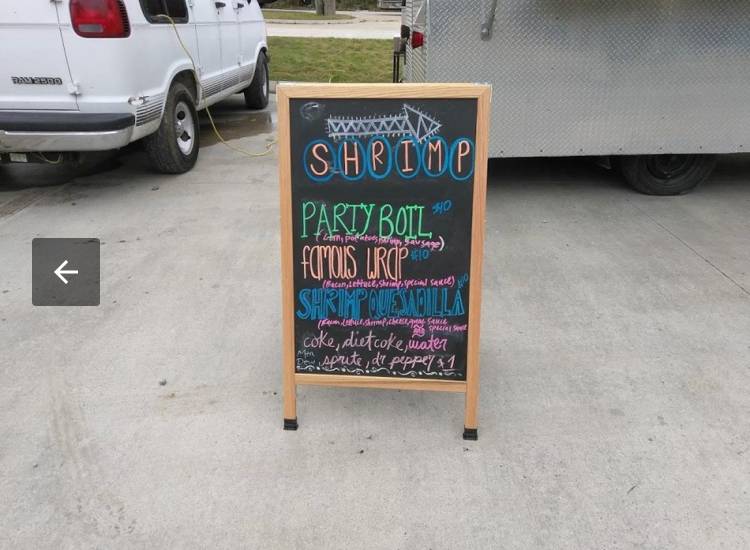 RAM 2500
SHRIMP
PARTY BOIL $10
(Corn, potatoes, shrimp, sausage)
famous wrap $10
(Bacon, Lettuce, shrimp, special sauce)
SHRIMP QUESADILLA $10
(Bacon, lettuce, shrimp, cheese, sauce
special sauce
coke, diet coke, water
Mtn Dew sprite, dr pepper $1